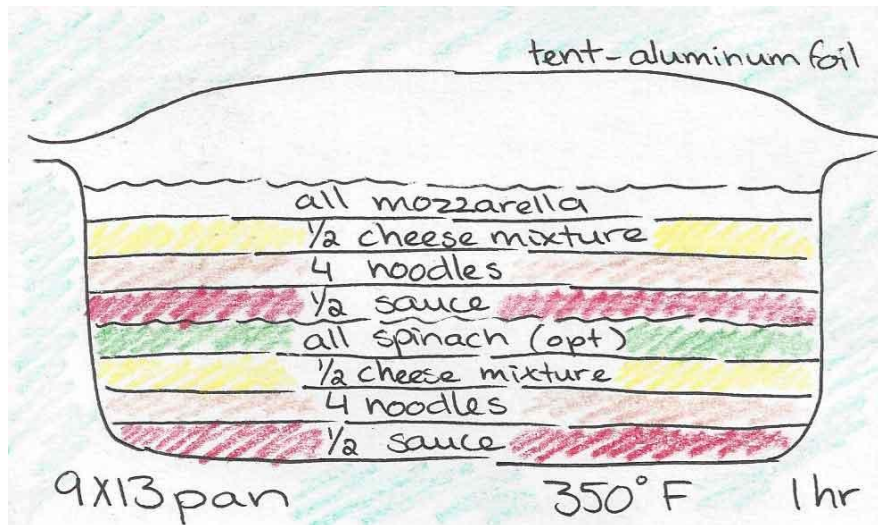 tent-aluminum foil
all mozzarella
½ cheese mixture
4 noodles
½ sauce
all spinach (opt)
½ cheese mixture
4 noodles
½ sauce
9X13 pan 350°F 1 hr